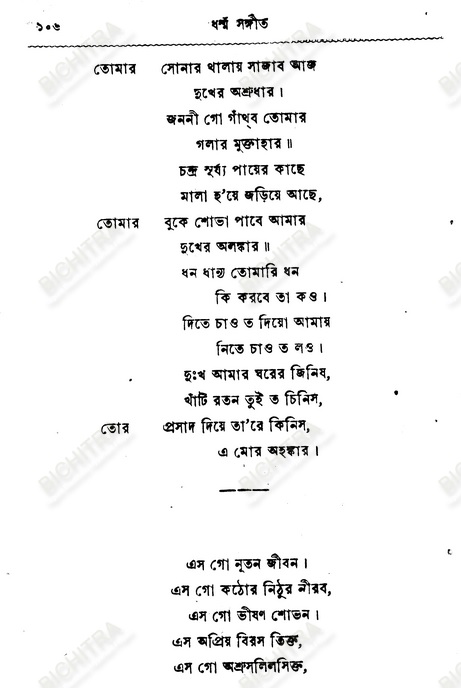 ১০৬ ধর্ম্ম সঙ্গীত
তোমার সোনার থালায় সাজাব আজ
দুখের অশ্রুধার।
জননী গো গাঁথ্‌ব তোমার
গলার মুক্তাহার॥
চন্দ্র সূর্য্য পায়ের কাছে
মালা হ'য়ে জড়িয়ে আছে,
তোমার বুকে শোভা পাবে আমার
দুখের অলঙ্কার॥
ধন ধান্য তোমারি ধন
কি করবে তা কও।
দিতে চাও ত দিয়ো আমায়
নিতে চাও ত লও।
দুঃখ আমার ঘরের জিনিষ,
খাঁটি রতন তুই ত চিনিস,
তোর প্রসাদ দিয়ে তা'রে কিনিস,
এ মোর অহঙ্কার।
এস গো নূতন জীবন।
এস গো কঠোর নিঠুর নীরব,
এস গো ভীষণ শোভন।
এস অপ্রিয় বিরস তিক্ত,
এস গো অশ্রুসলিলসিক্ত,
BICHITRA